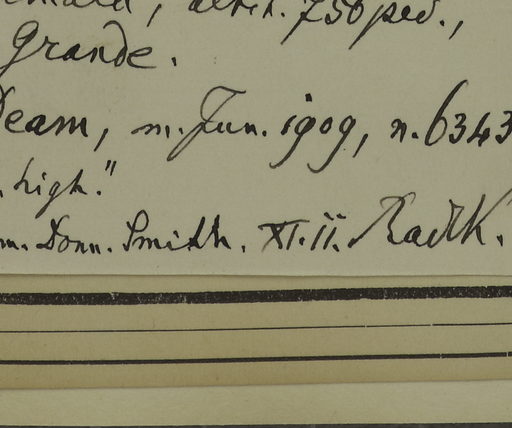 altit. 750 ped.,
Grande.
Deam, m. Jun. 1909, n. 6343
high."
m. Donn. Smith. XI. ii. Radlk.